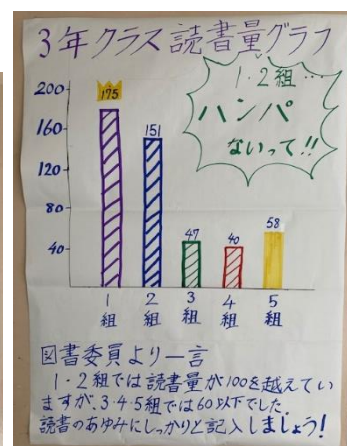 3年クラス読書量グラフ
1・2組…
ハンパ
ないって!!
200
160
120
80
40
175
151
47
40
58
1組
2組
3組
4組
5組
図書委員より一言
1・2組では読書量が100を越えてい
ますが、3・4・5組では60以下でした。
読書のあゆみにしっかりと記入しましょう!